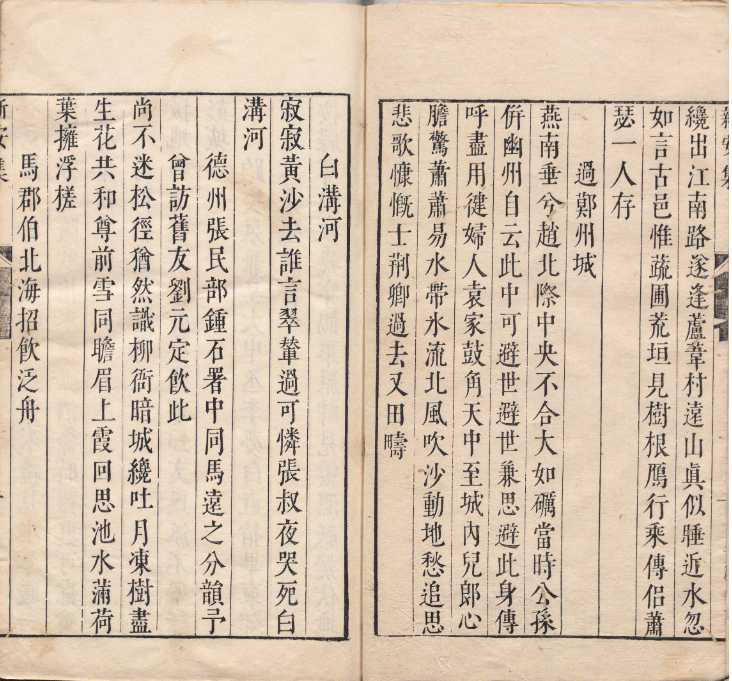 纔出江南路遂逢蘆葦村遠山眞似睡近水忽
如言古邑惟蔬圃荒垣見樹根鴈行乘傳侣蕭
瑟一人存
過鄚州城
燕南垂兮趙北際中央不合大如礪當時公孫
併幽州自云此中可避世避世兼思避此身傳
呼盡用健婦人袁家鼓角天中至城內兒郎心
膽驚蕭蕭易水帶氷流北風吹沙動地愁追思
悲歌慷慨士荆卿過去又田疇
白溝河
寂寂黃沙去誰言翠輦過可憐張叔夜哭死白
溝河
德州張民部鍾石署中同馬遠之分韻予
曾訪舊友劉元定飲此
尚不迷松徑猶然識柳衙暗城纔吐月凍樹盡
生花共和尊前雪同瞻眉上霞回思池水滿荷
葉擁浮槎
馬郡伯北海招飲泛舟